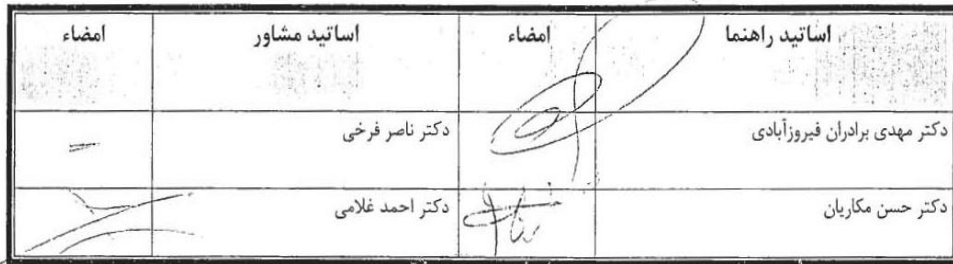 اساتید راهنما امضاء اساتید مشاور امضاء
دکتر مهدی برادران فیروزآبادی دکتر ناصر فرخی
دکتر حسن مکاریان دکتر احمد غلامی